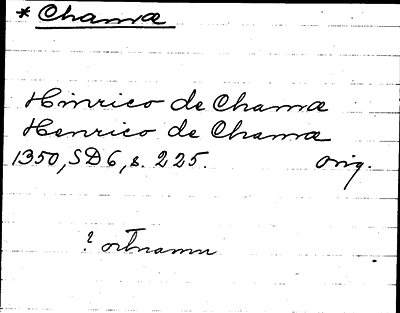 * Chamæ
Hinrico de Chamæ
Henrico de Chamæ
1350, SD 6, s. 225. orig.
? ortnamn